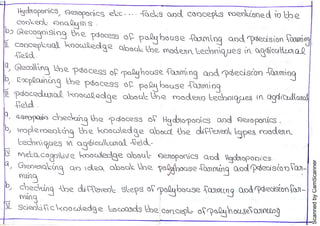 Hydroponics, aeroponics etc.... facts and concepts mentioned in the
content analysis.
b, Recognising the process of polyhouse farming and precision farming
II conceptual knowledge about the modern techniques in agricultural
field.
a, Recalling the process of polyhouse farming and precision farming
b, Explaining the process of polyhouse farming
III procedural knowledge about the modern techniques in agricultural
field
a, checking the process of Hydroponics and aeroponics.
b, implementing the knowledge about the different types modern
techniques in agricultural field.
IV metacognitive knowledge about aeroponics and Hydroponics
a, Generating an idea about the polyhouse farming and precision far-
ming
b, checking the different steps of polyhouse farming and precision far-
ming
V Scientific knowledge towards the concept of polyhouse farming
Scanned by CamScanner